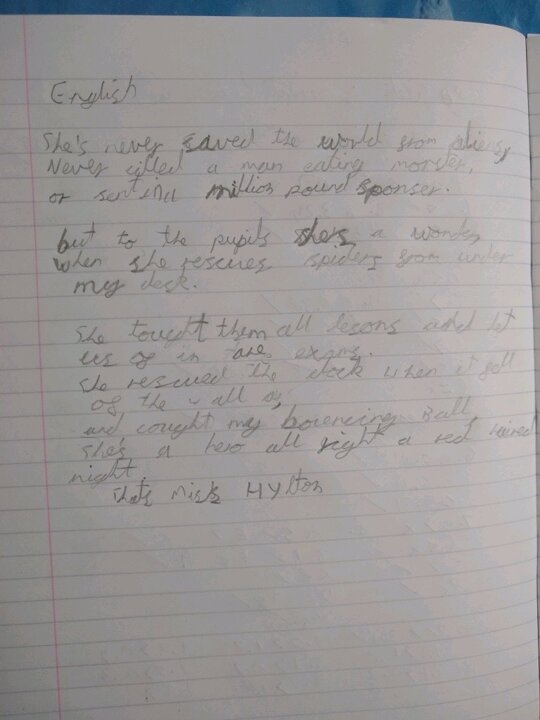 English
She's never saved the world from aliens,
Never cilled a man eating monster,
or sent a million pound sponser.
but to the pupils shes a wonder
when she rescues spiders from under
my desk.
She tought them all lesons and let
us of in are exams.
She rescued the clock when it fell
of the wall
and cought my bouencing Ball,
She's a hero all right a red haired
night.
Thats Miss Hylton